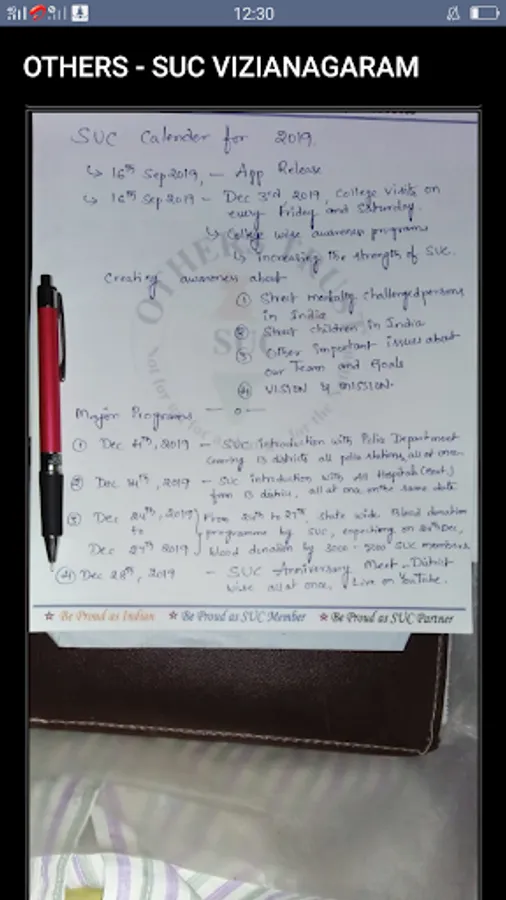 12:30
OTHERS - SUC VIZIANAGARAM
SUC Calender for 2019.
↳ 16th Sep 2019, — App Release
↳ 16th Sep 2019 - Dec 3rd 2019, College visits on
every Friday and Saturday.
↳ College wise awareness programs
↳ increasing the strength of SUC.
Creating awareness about
① Street mentally challenged persons
in India
② Street children in India
③ Other important issues about
our Team and Goals
④ VISION & MISSION.
Major Programs — o —
① Dec 4th, 2019 - SUC introduction with Police Department
Covering 13 districts all police stations, all at once.
② Dec 14th, 2019 - SUC introduction with All Hospitals (Govt.)
from 13 district, all at once on the same date.
③ Dec 24th, 2019 From 24th to 27th, state wide Blood donation
to programme by SUC, expecting on 24th Dec,
Dec 27th 2019 blood donation by 3000 - 5000 SUC members
④ Dec 28th, 2019 - SUC Anniversary Meet - District
wise all at once, Live on YouTube.
★ Be Proud as Indian ★ Be Proud as SUC Member ★ Be Proud as SUC Partner
OTHERS TRUST
SUC